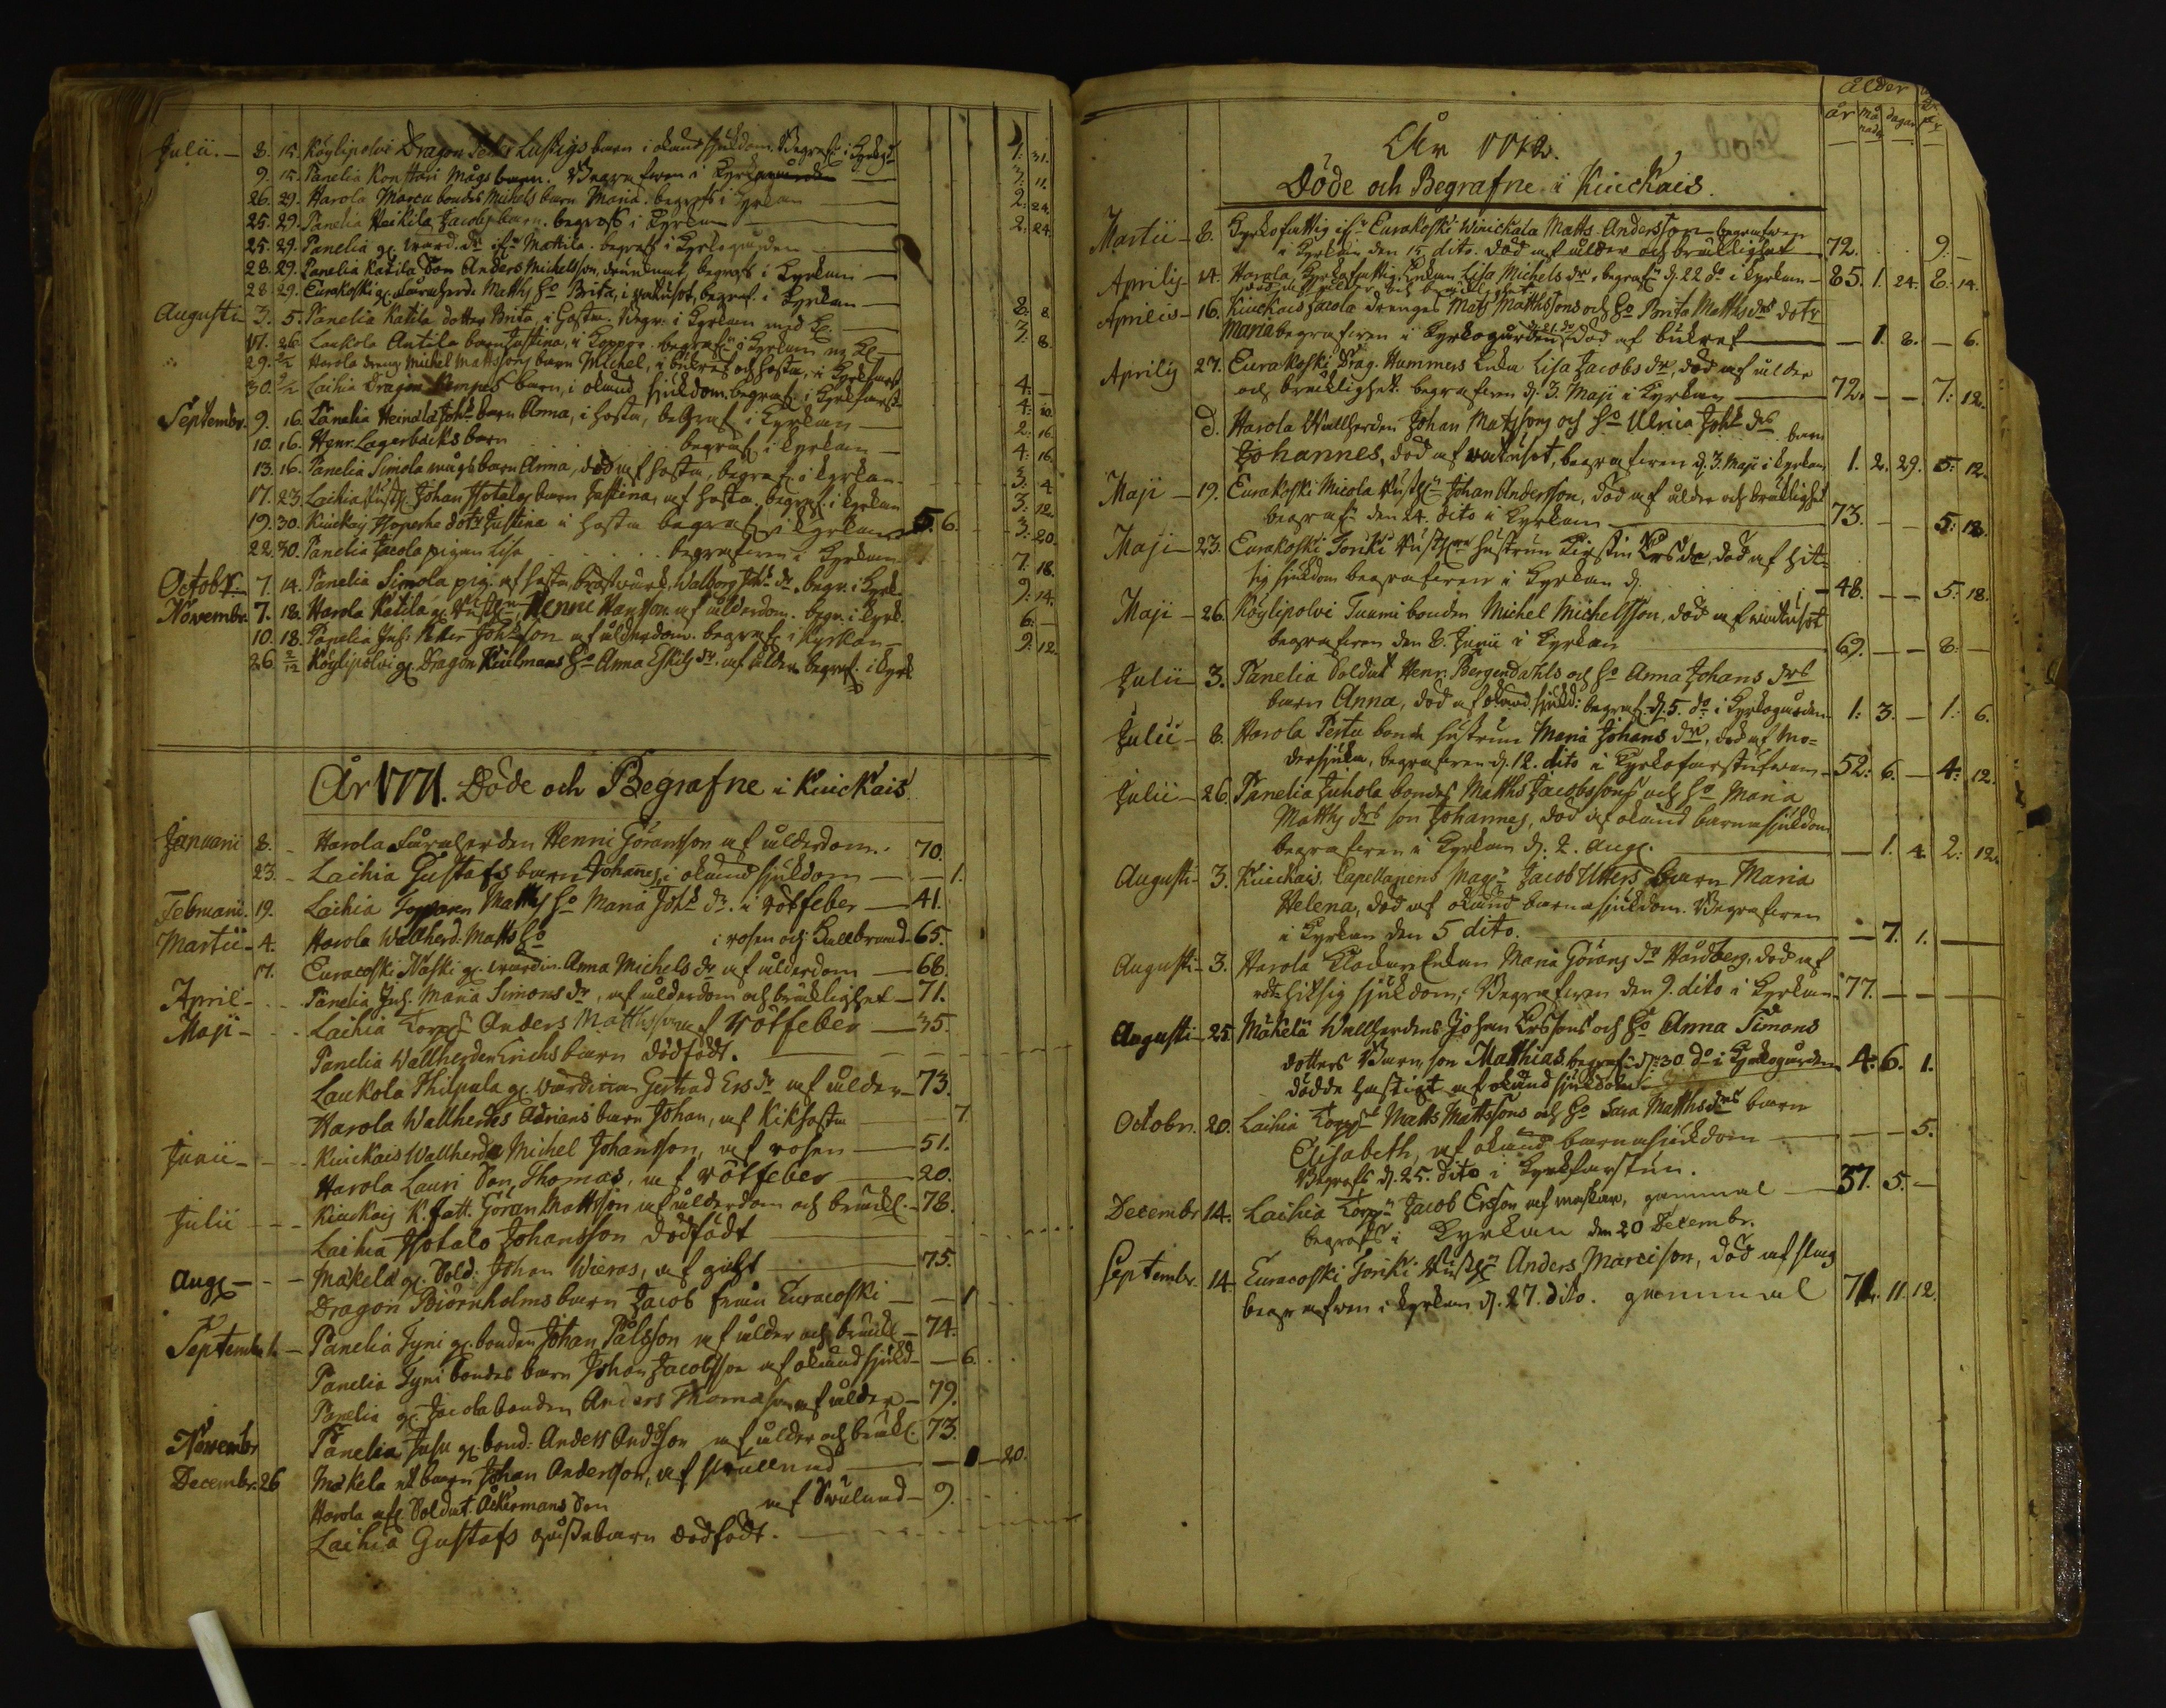 Julii. 8. 15. Köylipolvi Dragon Lustigs barn i okänd sjukdom. Begrafs i Kyrkog. 1: 31.
9. 15. Panelia Konstari Mågs barn. Begrafwen i Kyrkogården 3: 11.
26. 29. Harola Marcu bondes Michels barn Maria. begrafs i Kyrkan 2: 24.
25. 29. Panelia Heikilä Jacobs barn. begrafs i Kyrkan 2: 24.
25. 29. Panelia gl. värd. dr Mattila. begrafs i Kyrkogården
28. 29. Panelia Katila Son Anders Michelsson, drunknat, begrafs i Kyrkan
28. 29. Eurakoski gl. Fåraherde Matths ho Brita, i wattusot, begraf. i Kyrkan
Augusti 3. 5. Panelia Katila dotter Brita, i Hosta. Begr. i Kyrkan 2: 8
17. 26. Laukola Antila barn Justina, i Koppor. begrafs i Kyrkan 3: 8.
29. 2/2 Harola dreng Michel Mattssons barn Michel, i bukref och hosta, i Kyrkfarst.
30. 2/2 Laihia Dragon Kempes barn, i okänd sjukdom. begraf. i Kyrkfarst. 4.
Septembr. 9. 16. Panelia Heinila Joh: barn Anna, i hosta, begraf. i Kyrkan 4: 10.
10. 16. Henr. Lagerbäcks barn . . . begraf. i kyrkan 2: 16.
13. 16. Panelia Simola mågs barn Anna, död af hosta, begraf. i kyrkan 4: 16.
17. 23. Laihia Johan Hotalas barn Justina, af hosta. begraf. i kyrkan 3: 4.
19. 30. Kiuckais Hopeaha dotr Justina i hosta begraf. i Kyrkan 5. 6. 3: 12.
22. 30. Panelia Jacola pigan Lisa . . . begrafwen i Kyrkan 3: 20.
Octobr: 7. 14. Panelia Simola pig. af hosta, bröstvärk, Walborg Joh: dr. begr. i Kyrk. 7. 18.
Novembr. 7. 18. Harola Katila gl. Henric Hansson af ålderdom. begr. i kyrk. 9: 14.
10. 18. Panelia Inh: Petter Joh:sson af ålderdom. begraf. i kyrkan 6:
26 2/12 Köylipolvi gl. Dragon Kulmans ho Anna Eskils dr. af ålder. begraf. i Kyrk 9: 12.
År 1771. Döde och Begrafne i Kiuckais
Januarii 8. Harola Fåraherden Henric Göransson af ålderdom. 70.
23. Laihia Gustafs barn Johannes i okänd sjukdom 1.
Februarii. 19. Laihia Torparen Matths ho Maria Joh: dr. i rötfeber 41.
Martii 4. Harola Wallherd: Matts ho i rosen och kallbrand 65.
17. Euracoski Näski gl. värdin. Anna Michels dr af ålderdom 68.
April Panelia Inh. Maria Simons dr, af ålderdom och bräklighet 71.
Maji Laihia Torp: Anders Mattsson af Rötfeber 35.
Panelia Wallherden Erichs barn dödfödt.
Laukola Thilpala gl. värdinnan Gertrud Ers dr af ålder 73.
Harola Wallherdes Adrians barn Johan, af Kikhosta 7.
Junii Kiuckais Wallherde Michel Johansson, af rosen 51.
Harola Lauri Son Thomas, af rötfeber 20.
Julii Kiuckais K. fatt. Göran Mattsson af ålderdom och bräckl. 78.
Laihia Hotalo Johansson dödfödt
Aug: Mäkelä gl. Sold: Johan Wieras, af gicht 75.
Dragon Biörnholms barn Jacob från Euracoski 1
Septembr. Panelia Tyni gl. bonden Johan Pålsson af ålder och bräckl. 74.
Panelia Tyni bondes barn Johan Jacobsson af okänd sjukd. 6.
Panelia gl. Jacola bonden Anders Thomasson af ålder 79.
Novembr Panelia Juſu gl. bond: Anders Andsson af ålder och bräckl. 73.
Decembr. 26 Mäkelä barn Johan Andersson, af 20.
Harola Soldat. Åckermans Son af Swulnad 9.
Laihia Gustafs barn dödfödt.
Ålder
år må nad dagar
År 1772.
Döde och Begrafne i Kiuckais.
Martii 8. Kyrkofattig Eurakoski Winichala Matts Andersson begrafwen
i Kyrkan den 15 dito. död af ålder och bräcklighet 72. 9.
Aprilis 14. Harola, Kyrkofattig Enkan Lisa Michels dr. begraf: d. 22 do i kyrkan 85. 1. 24. 8. 14.
död af ålder och bräcklighet
Aprilis 16. Kiuckais Jacola drenges Mats Matthssons och ho Brita Matths drs dotr
Maria begrafwen i Kyrkogården d. 21. do död af bukref 1. 8. 6.
Aprilis 27. Eurakoski Drag. Hammers Enka Lisa Jacobs dr, död af ålder
och bräcklighet begrafwen d. 3. Maji i Kyrkan 72. 7: 12.
d. Harola Wallherden Johan Matssons och ho Ulrica Joh: drs barn
Johannes, död af wattusot, begrafwen d. 3. Maji i kyrkan 1. 2. 29. 5: 12.
Maji 19. Eurakoski Micola Johan Andersson, död af ålder och bräklighet
begraf: den 24. dito i Kyrkan 73. 5: 18.
Maji 23. Eurakoski Toriki hustrun Kirstin Ers dr, död af hit=
sig sjukdom begrafwen i Kyrkan d. 48. 5: 18.
Maji 26. Köylipolvi Tuomi bonden Michel Michelsson, död af wattusot
begrafwen den 8. Junii i Kyrkan 69. 8:
Julii 3. Panelia Soldat Henr: Bergendahls och ho Anna Johans drs
barn Anna, död af okänd sjukd: begraf. d. 5. do i Kyrkogården 1: 3. 1: 6.
Julii 8. Harola Pertu bonde hustrun Maria Johans dr, död af Mo=
dersjuka, begrafwen d. 12. dito i Kyrkofarstufwan 52: 6. 4: 12.
Julii 26. Panelia Juhola bondes Matths Jacobssons och ho Maria
Matths drs son Johannes, död af okänd barnasjukdom
begrafwen i Kyrkan d. 2. Aug: 1. 4. 2: 12.
Augusti 3. Kiuckais. Capellanens Mag: Jacob Utters barn Maria
Helena, död af okänd barnasjukdom. Begrafwen
i Kyrkan den 5 dito. 7. 1.
Augusti 3. Harola Klockare Enkan Maria Görans dr Hårdberg, död af
hitsig sjukdom; Begrafwen den 9. dito i Kyrkan 77.
Augusti 25. Mäkelä Wallherdens Johan Erssons och ho Anna Simons
dotters Barn, son Mathias begraf: d. 30 do i Kyrkogården 4. 6. 1.
dödde hastigt af okänd sjukdom
Octobr. 20. Laihia Torp: Matts Mattssons och ho Sara Matths drs barn
Elisabeth, af okänd barnasjukdom 5.
Begrafs d. 25. dito i Kyrkfarstun.
Decembr 14. Laihia Torp: Jacob Ersson af maskar, gammal 37. 5.
begrafs i Kyrkan den 20 Decembr.
Septembr. 14. Euracoski Toriki Anders Marcisson, död af slag
begrafwen i kyrkan d. 27. dito. gammal 71. 11. 12.